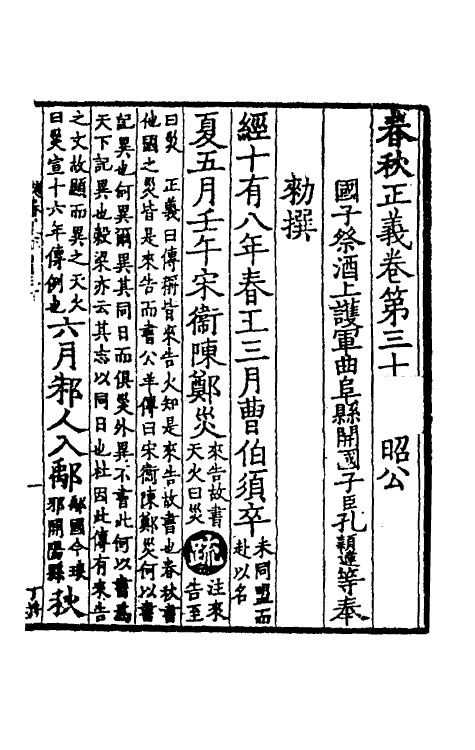 春秋正義卷第三十 昭公
國子祭酒上護軍曲阜縣開國子臣孔穎達等奉
勑撰
經十有八年春王三月曹伯須卒未同盟而赴以名
夏五月壬午宋衞陳鄭災來告故書天火曰災疏注來告至
曰災 正義曰傳稱皆來告火知是來告故書也春秋書
他國之災皆是來告而書公羊傳曰宋衞陳鄭災何以書
記異也何異爾異其同日而俱災外異不書此何以書爲
天下記異也穀梁亦云其志以同日也杜因此傳有來告
之文故顯而異之天火
曰災宣十六年傳例也六月邾人入鄅鄅國今琅邪開陽縣秋
一